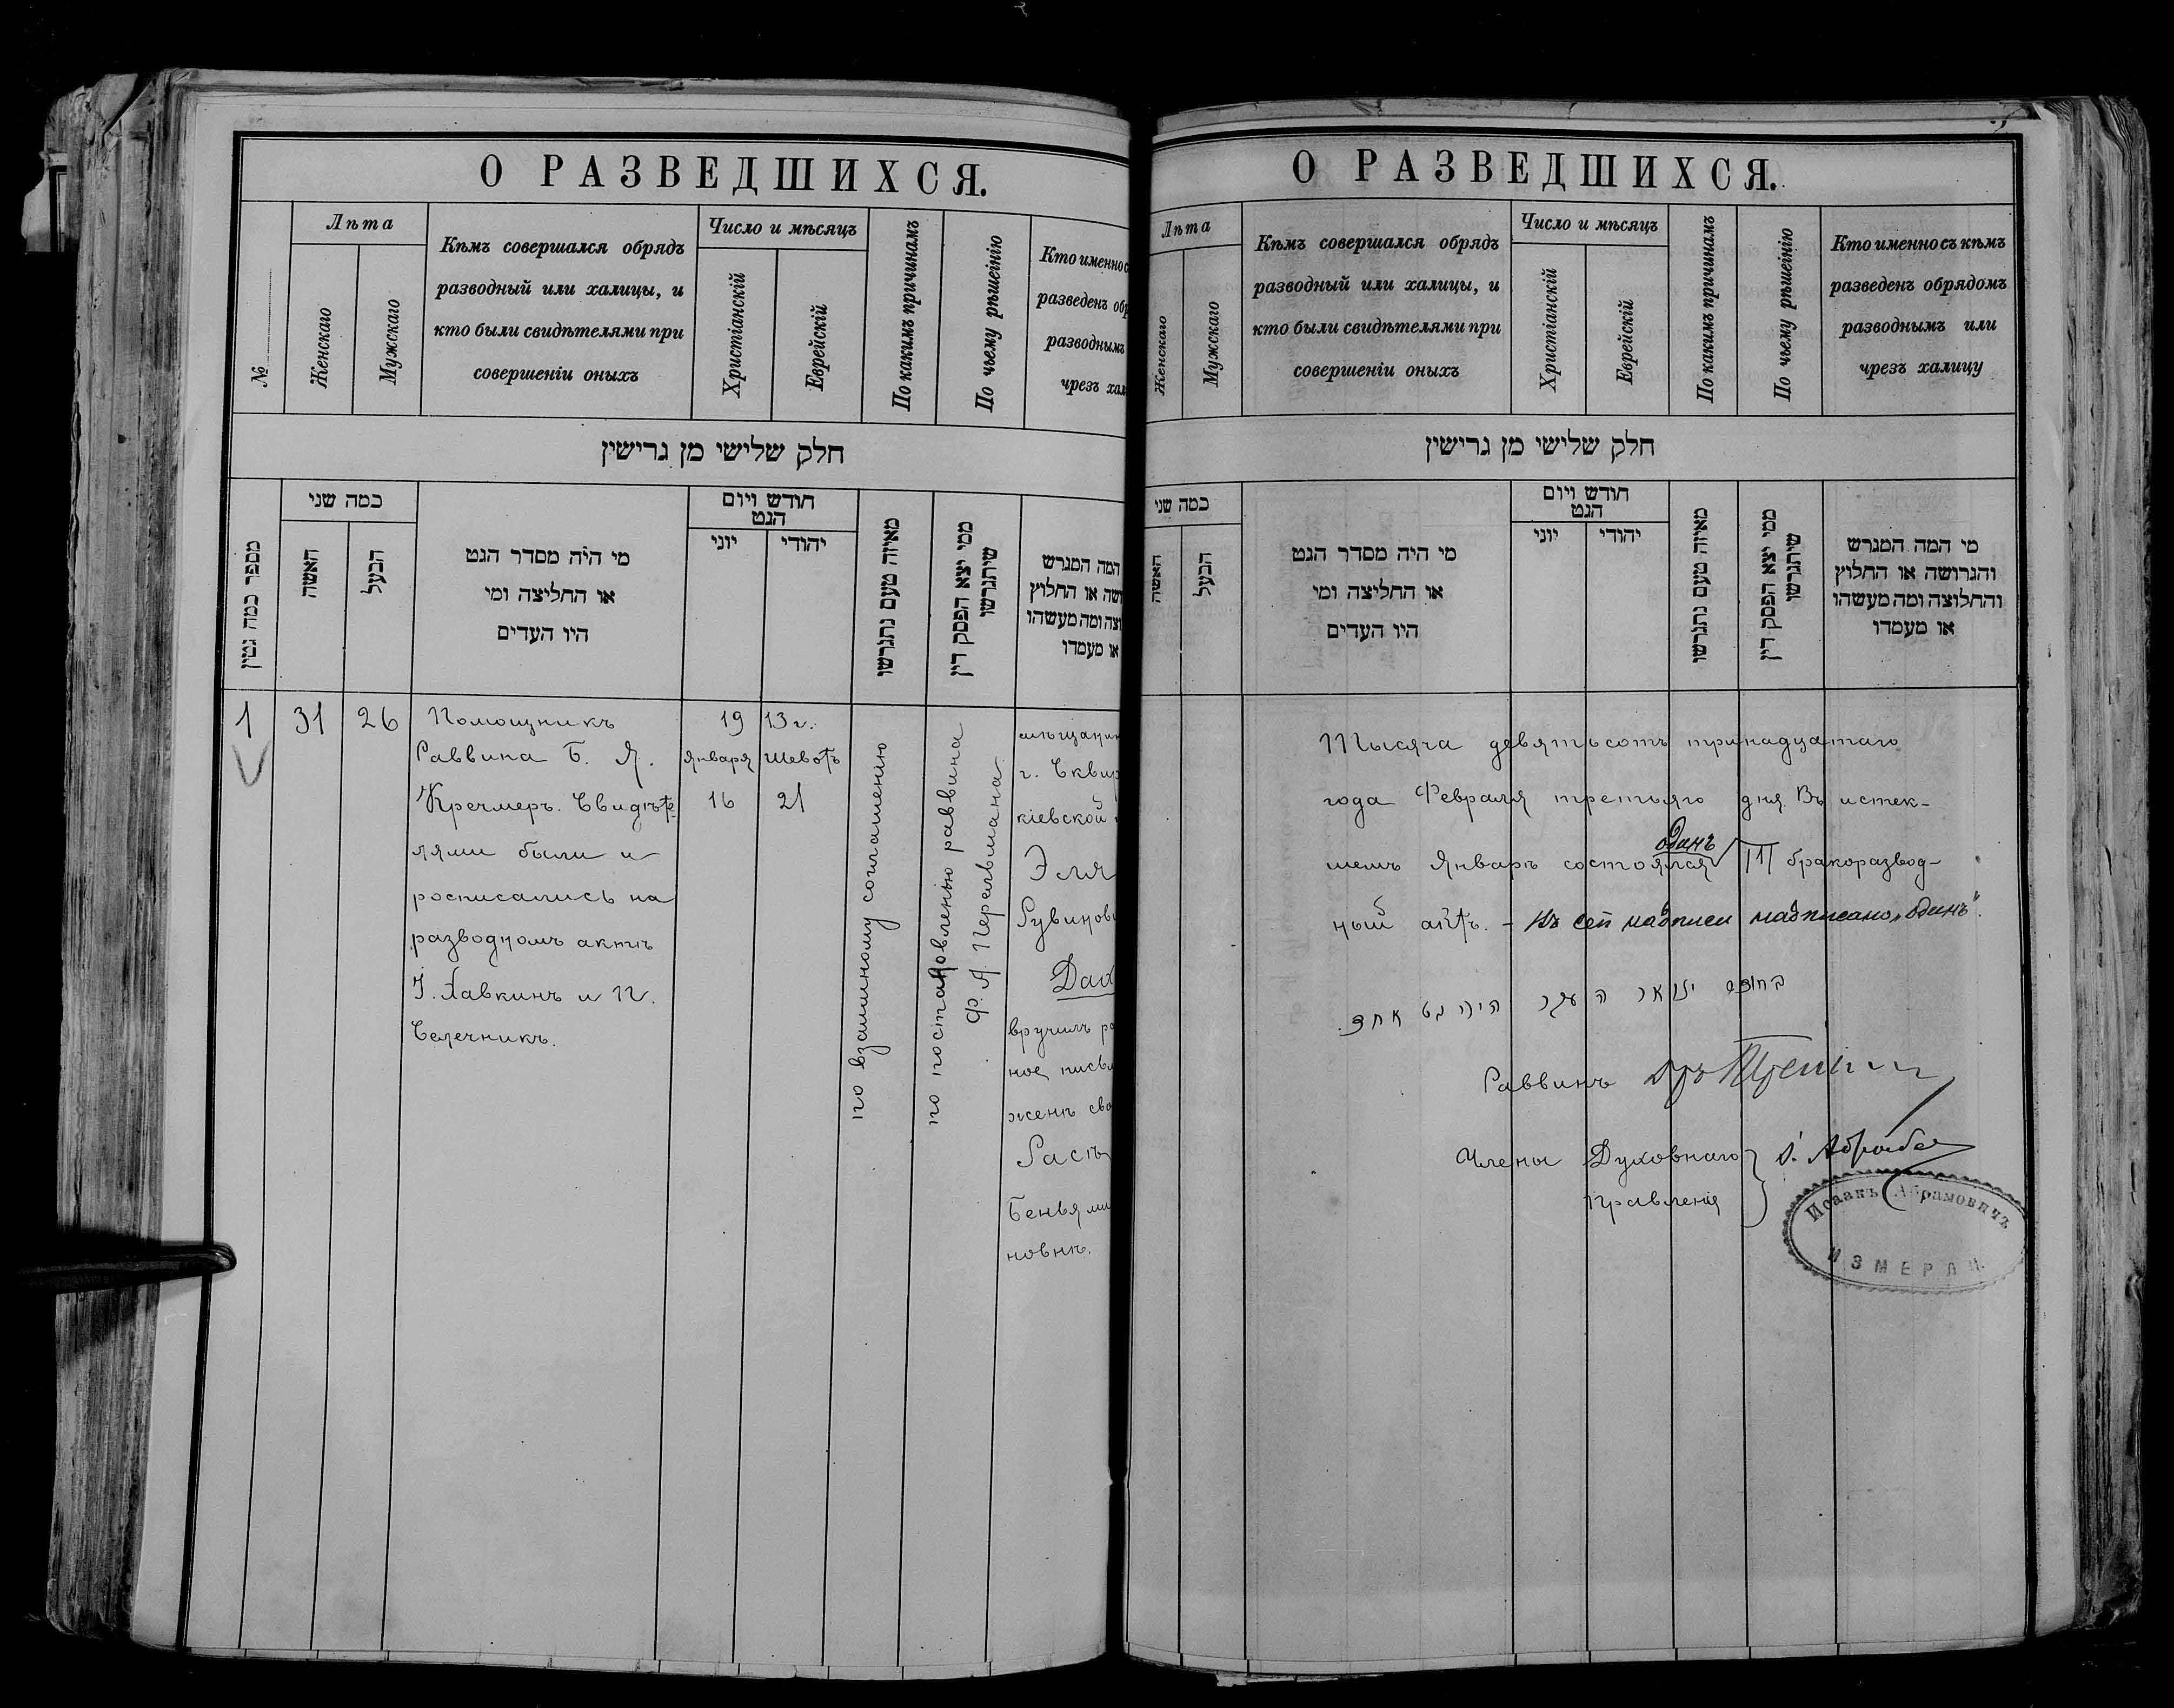 О РАЗВЕДШИХСЯ.
№
Лѣта
Женскаго
Мужскаго
Кѣмъ совершался обрядъ
разводный или халицы, и
кто были свидѣтелями при
совершеніи оныхъ
Число и мѣсяцъ
Христіанскій
Еврейскій
По какимъ причинамъ
По чьему рѣшеінію
Кто именно с
разведенъ обр
разводнымъ
чрезъ хал
חלק שלישי מן גרישין
מספר כמה גטין
כמה שני
האשה
הבעל
מי היה מסדר הגט
או החליצה ומי
היו העדים
חודש ויום
הגט
יוני
יהודי
מאיזה טעם נתגרשו
ממי יצא הפסק דין
שיתגרשו
המה המגרש
ושה או החלוץ
וצה ומה מעשהו
או מעמדו
1
31
26
Помощникъ
Раввина Б. Я.
Кречмеръ. Свидѣте-
лями были и
росписались на
разводномъ актѣ
І. Хавкинъ и П.
Селечникъ.
19 13 г.
Января Шевотъ
16 21
по взаимному соглашенію
по постановленію раввина
Ф. А. Перельмана
мѣщанин
г. Сквир
кіевской
Эля
Рувинов
Дах
вручилъ ра
ное письм
женѣ сво
Расѣ
Беньями
новнѣ.
О РАЗВЕДШИХСЯ.
Лѣта
Женскаго
Мужскаго
Кѣмъ совершался обрядъ
разводный или халицы, и
кто были свидѣтелями при
совершеніи оныхъ
Число и мѣсяцъ
Христіанскій
Еврейскій
По какимъ причинамъ
По чьему рѣшеінію
Кто именно съ кѣмъ
разведенъ обрядомъ
разводнымъ или
чрезъ халицу
חלק שלישי מן גרישין
כמה שני
האשה
הבעל
מי היה מסדר הגט
או החליצה ומי
היו העדים
חודש ויום
הגט
יוני
יהודי
מאיזה טעם נתגרשו
ממי יצא הפסק דין
שיתגרשו
מי המה המגרש
והגרושה או החלוץ
והחלוצה ומה מעשהו
או מעמדו
Тысяча девятьсотъ тринадцатаго
года Февраля третьяго дня. Въ истек-
одинъ
шемъ Январѣ состоялся /1/ бракоразвод-
ный актъ. – Въ сей надписи надписано „одинъ".
בחודש ינואר העבר היה גט אחד.
Раввинъ
Члены Духовнаго
Правленія
Исаакъ Абрамовичъ
ИЗМЕРЛИ